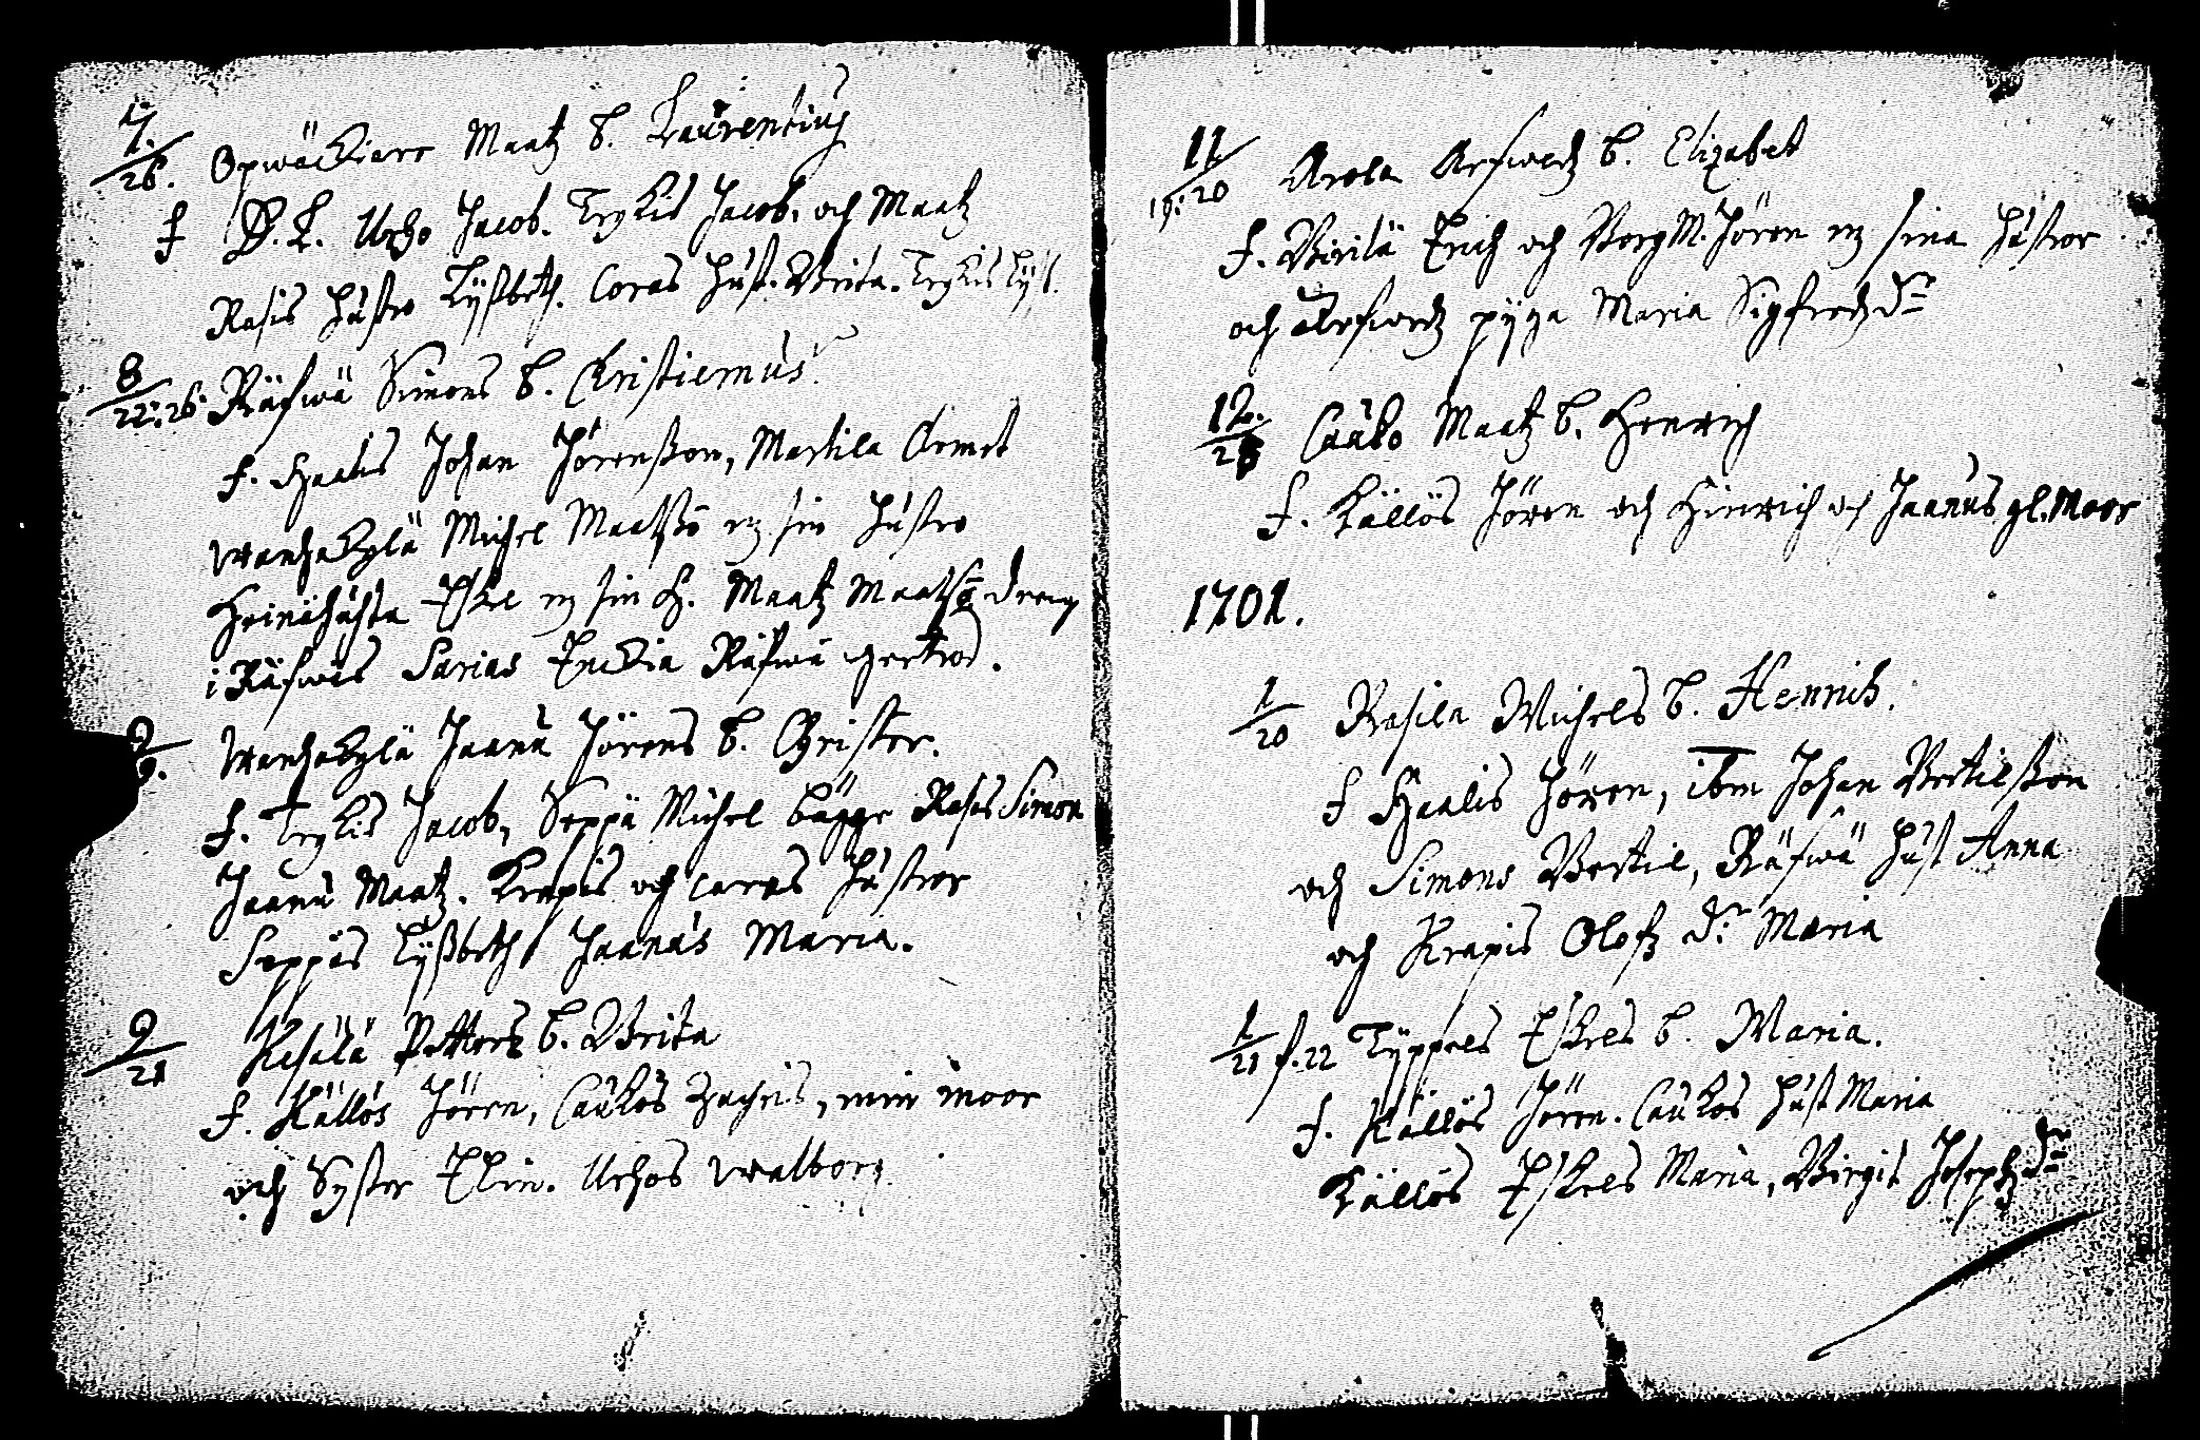 7.
26. Opwäckiars Maatz b. Laurentius
f D. L. Urho Jacob. Trykis Jacob. och Maatz
Rasis hustro Lyßbeth. Coras hust. Brita. Trykis Lyß.
8
22:26 Räfwä Simons b. Christiernus
f. Haalis Johan Jörenßon, Martila
wanhakylä Michel Maatßō m sin hustro
Eskel m sin h. Maatz Maatsō dreng
i Räfwäs Sarias Räfwä gertrod.
9
9. wanhakylä Jaanu Jörens b. Christer.
f. Trykis Jacob, Seppä Michel bägge Rasis Simon
Jaanu Maatz. Krapis och Caras hustror
Seppäs Lyßbeth Jaanus Maria.
9
21 Kesälä Petters b. Brita
f. Källös Jören, Caukos Zachris, min moor
och Syster Elin. Urhos walborg
11
19: 20 Arola Arfwedz b. Elizabet
f. Birilä Erich och BorgM. Jören m sina hustror
och Arfwedz pyga Maria Sigfredz dr
12.
28 Cauko Maatz b. Henrich
f. Källös Jören och Hinrich och Jaanus gl. Moor
1701.
1
20 Rasila Michels b. Henrich.
f Haalis Jören, ibm Johan Bertilßon
och Simons Bertil, Räfwä hust Anna
och Krapis Olofz dr Maria
1
21 f. 22 Typpels Eskels b. Maria.
f. Källös Jören. Caukos hust Maria
Källös Eskels Maria, Birgit Josephz dr